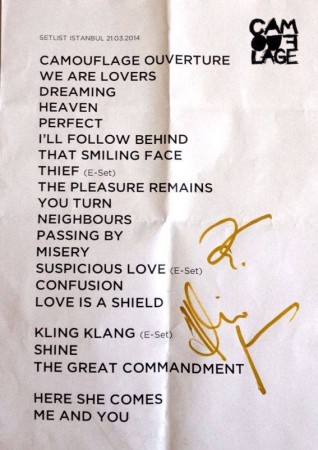 SETLIST ISTANBUL 21.03.2014
CAM
OUF
LAGE
CAMOUFLAGE OUVERTURE
WE ARE LOVERS
DREAMING
HEAVEN
PERFECT
I'LL FOLLOW BEHIND
THAT SMILING FACE
THIEF (E-Set)
THE PLEASURE REMAINS
YOU TURN
NEIGHBOURS
PASSING BY
MISERY
SUSPICIOUS LOVE (E-Set)
CONFUSION
LOVE IS A SHIELD
KLING KLANG (E-Set)
SHINE
THE GREAT COMMANDMENT
HERE SHE COMES
ME AND YOU